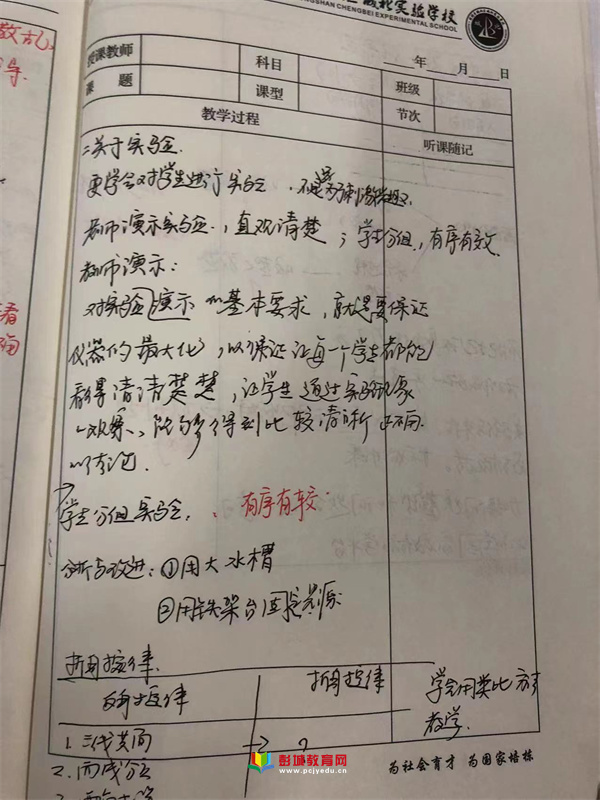 城北实验学校
SHAN CHENGBEI EXPERIMENTAL SCHOOL
授课教师 科目 年 月 日
课题 课型 班级
教学过程 节次
听课随记
二关于实验.
要学会对学生进行实验
教师演示实验,直观清楚;学生分组,有序有效
教师演示:
对实验演示的基本要求,就是要保证
仪器的最大化,以保证让每一个学生都能
看得清清楚楚,让学生通过实验现象
观察,能够得到比较清晰正确
结论.
学生分组实验,有序有较.
分析与改进:①用大水槽
②用铁架台固定光源
折射定律.
反射定律 折射定律 学会用类比方
教学.
1.三线共面 →
2.两线分立
彭城教育网
www.pcjyedu.cn
为社会育才 为国家培栋